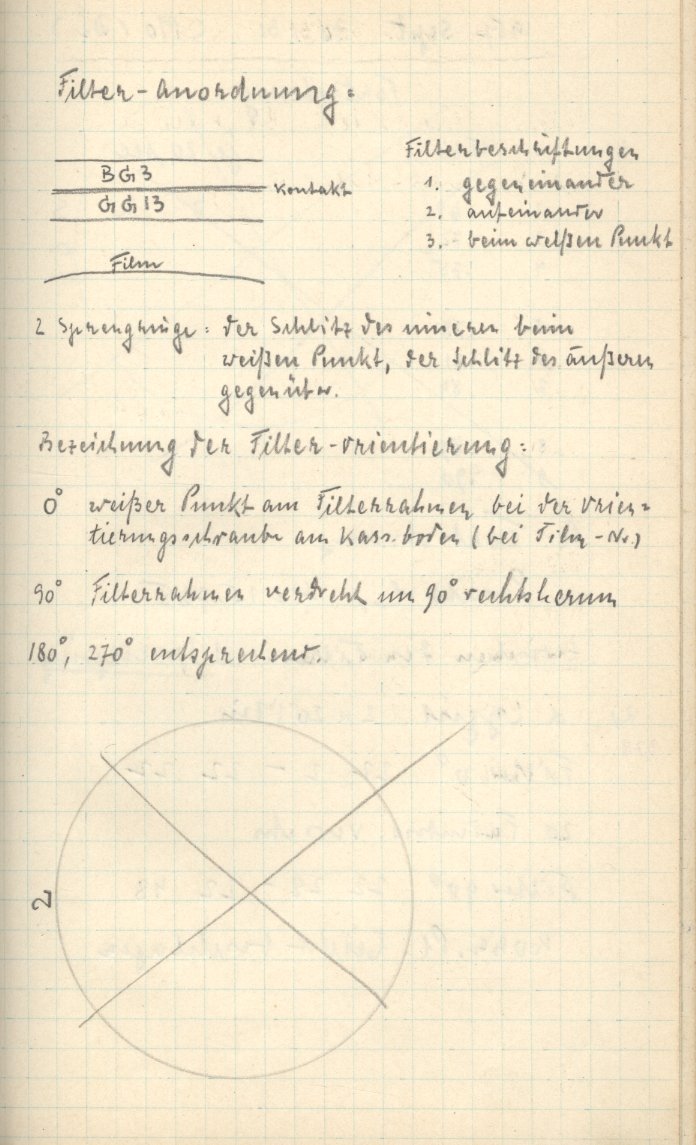 Filter-Anordnung:
BG3
Kontakt
GG13
Film
Filterbeschriftungen
1. gegeneinander
2. aufeinander
3. beim weißen Punkt
2 Sprengringe: der Schlitz des inneren beim
weißen Punkt, der Schlitz des äußeren
gegenüber.
Bezeichnung der Filter-Orientierung:
0° weißer Punkt am Filterrahmen bei der Orien=
tierungsschraube am Kass.boden (bei Film-Nr.)
90° Filterrahmen verdreht um 90° rechtsherum
180°, 270° entsprechend.
2